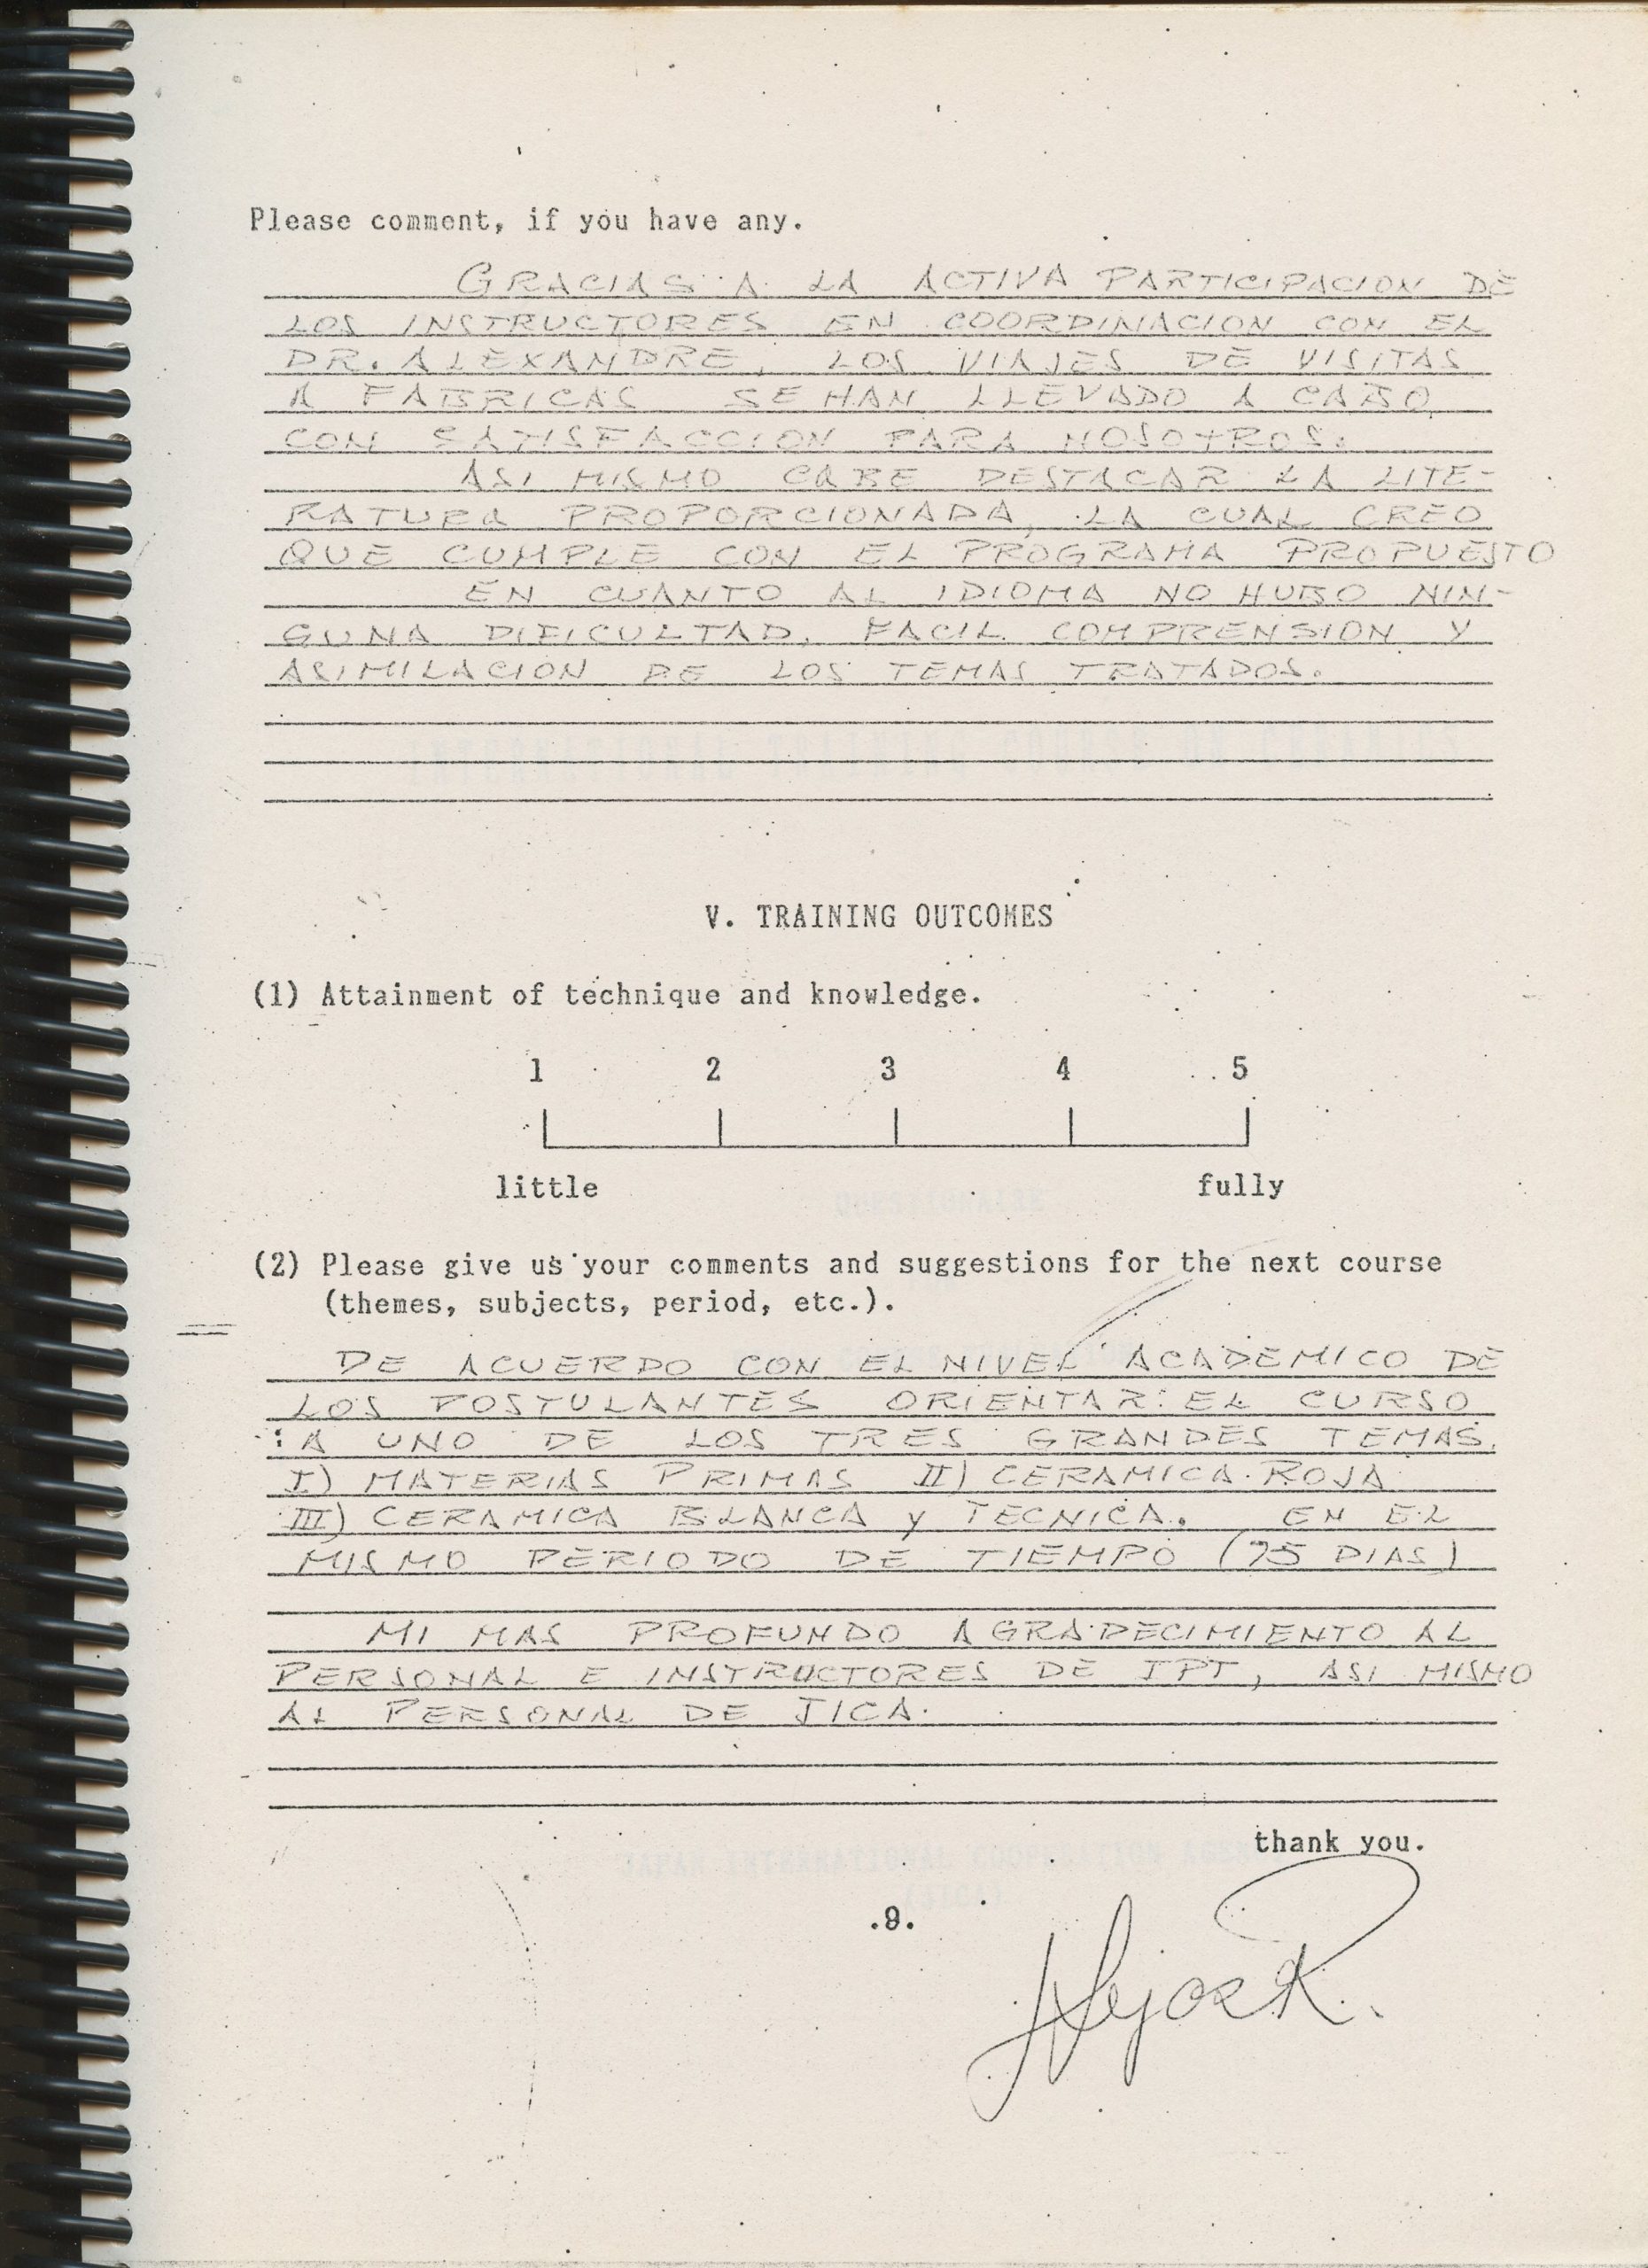 Please comment, if you have any.
GRACIAS A LA ACTIVA PARTICIPACION DE
LOS INSTRUCTORES EN COORDINACION CON EL
DR. ALEXANDRE, LOS VIAJES DE VISITAS
A FABRICAS SE HAN LLEVADO A CABO
CON SATISFACCION PARA NOSOTROS.
ASI MISMO CABE DESTACAR LA LITE-
RATURA PROPORCIONADA, LA CUAL CREO
QUE CUMPLE CON EL PROGRAMA PROPUESTO
EN CUANTO AL IDIOMA NO HUBO NIN-
GUNA DIFICULTAD, FACIL COMPRENSION Y
ASIMILACION DE LOS TEMAS TRATADOS.
V. TRAINING OUTCOMES
(1) Attainment of technique and knowledge.
1 2 3 4 5
little fully
(2) Please give us your comments and suggestions for the next course
(themes, subjects, period, etc.).
DE ACUERDO CON EL NIVEL ACADEMICO DE
LOS POSTULANTES ORIENTAR EL CURSO
A UNO DE LOS TRES GRANDES TEMAS.
I) MATERIAS PRIMAS II) CERAMICA ROJA
III) CERAMICA BLANCA y TECNICA. EN EL
MISMO PERIODO DE TIEMPO (75 DIAS)
MI MAS PROFUNDO AGRADECIMIENTO AL
PERSONAL E INSTRUCTORES DE IPT, ASI MISMO
AL PERSONAL DE JICA.
thank you.
.9.